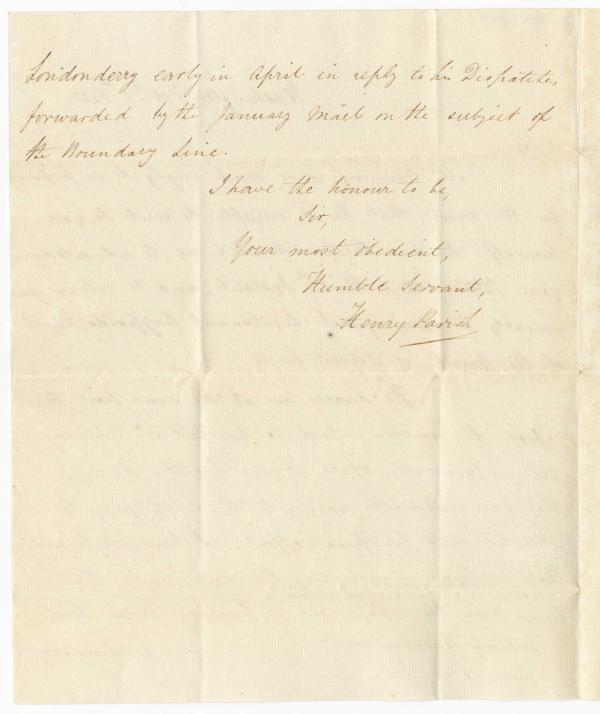 Londonderry early in April in reply to his Dispatches
forwarded by the January Mail on the subject of
the Boundary Line.
I have the honour to be,
Sir,
Your most obedient,
Humble Servant,
Henry Parish